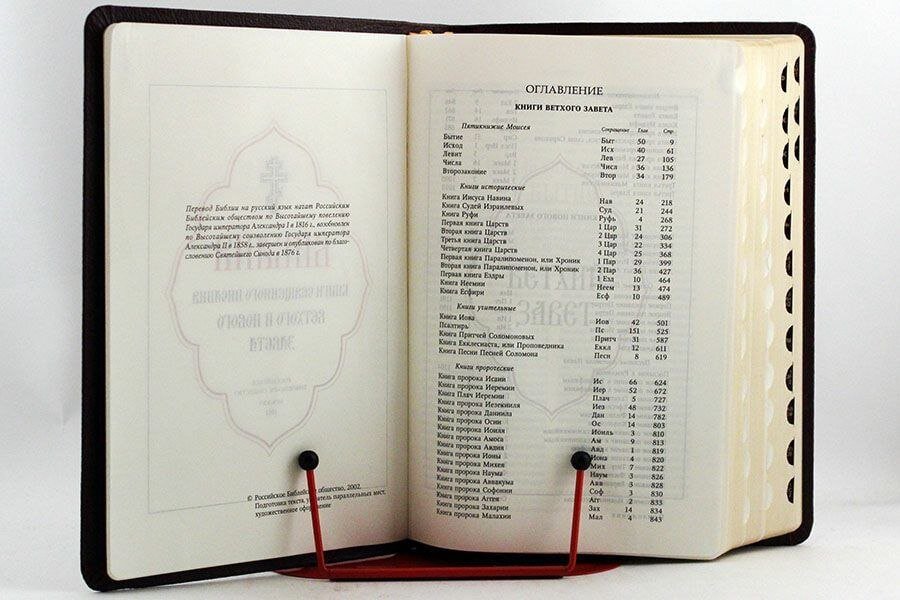 Перевод Библии на русский язык начат Российским
Библейским обществом по Высочайшему повелению
Государя императора Александра I в 1816 г., возобновлен
по Высочайшему соизволению Государя императора
Александра II в 1858 г., завершен и опубликован по благо-
словению Святейшего Синода в 1876 г.
© Российское Библейское общество, 2002.
Подготовка текста, указатель параллельных мест,
художественное оформление
ОГЛАВЛЕНИЕ
КНИГИ ВЕТХОГО ЗАВЕТА
Пятикнижие Моисея Сокращение Глав Стр.
Бытие Быт 50 9
Исход Исх 40 61
Левит Лев 27 105
Числа Числ 36 136
Второзаконие Втор 34 179
Книги исторические
Книга Иисуса Навина Нав 24 218
Книга Судей Израилевых Суд 21 244
Книга Руфи Руфь 4 268
Первая книга Царств 1 Цар 31 272
Вторая книга Царств 2 Цар 24 306
Третья книга Царств 3 Цар 22 334
Четвертая книга Царств 4 Цар 25 368
Первая книга Паралипоменон, или Хроник 1 Пар 29 399
Вторая книга Паралипоменон, или Хроник 2 Пар 36 427
Первая книга Ездры 1 Езд 10 464
Книга Неемии Неем 13 474
Книга Есфири Есф 10 489
Книги учительные
Книга Иова Иов 42 501
Псалтирь Пс 151 525
Книга Притчей Соломоновых Притч 31 587
Книга Екклесиаста, или Проповедника Еккл 12 611
Книга Песни Песней Соломона Песн 8 619
Книги пророческие
Книга пророка Исаии Ис 66 624
Книга пророка Иеремии Иер 52 672
Книга Плач Иеремии Плач 5 727
Книга пророка Иезекииля Иез 48 732
Книга пророка Даниила Дан 14 782
Книга пророка Осии Ос 14 803
Книга пророка Иоиля Иоиль 3 810
Книга пророка Амоса Ам 9 813
Книга пророка Авдия Авд 1 819
Книга пророка Ионы Иона 4 820
Книга пророка Михея Мих 7 822
Книга пророка Наума Наум 3 826
Книга пророка Аввакума Авв 3 828
Книга пророка Софонии Соф 3 830
Книга пророка Аггея Агг 2 833
Книга пророка Захарии Зах 14 834
Книга пророка Малахии Мал 4 843